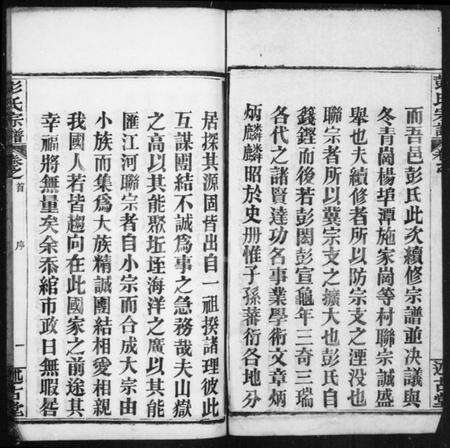 彭氏宗譜
卷之
述古堂
而吾邑彭氏此次續修宗譜並决議與
冬青崗楊竿潭施家崗等村聯宗誠盛
舉也夫續修者所以防宗支之湮没也
聯宗者所以冀宗支之擴大也彭氏自
籛鏗而後若彭閎彭宣龜年三奇三瑞
各代之諸賢達功名事業學術文章炳
炳麟麟昭於史册惟子孫蕃衍各地分
居探其源固皆出自一祖揆諸理彼此
互謀團結不誠爲事之急務哉夫山嶽
之高以其能聚坵垤海洋之廣以其能
匯江河聯宗者自小宗而合成大宗由
小族而集爲大族精誠團結相愛相親
我國人若皆趨向在此國家之前途其
幸福將無量矣余忝綰市政日無暇晷
彭氏宗譜
卷之首
序
一
述古堂